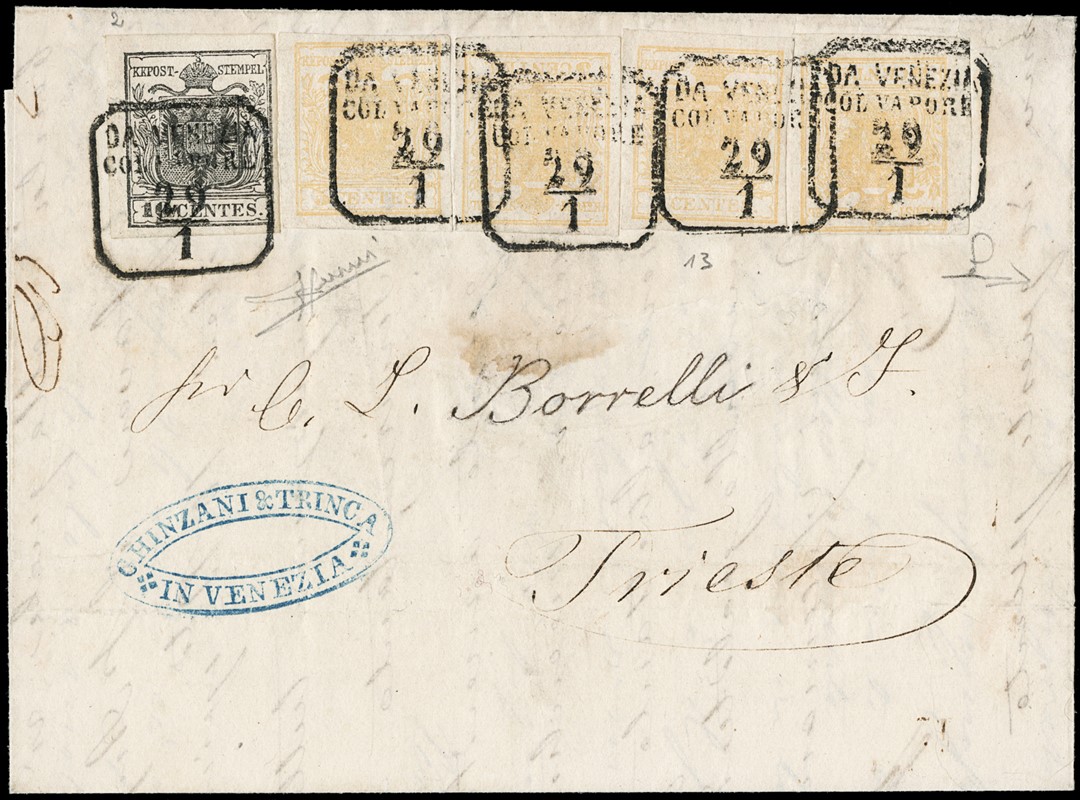 2
KKPOST-STEMPEL
10 CENTES.
DA VENEZIA
COL VAPORE
29
1
DA VENEZIA
COL VAPORE
29
1
CENTES
DA VENEZIA
COL VAPORE
29
1
DA VENEZIA
COL VAPOR
29
1
CENTES
DA VENEZIA
COL VAPORE
29
1
13
C. L. Borrelli & F.
GHINZANI & TRINCA
IN VENEZIA
Trieste